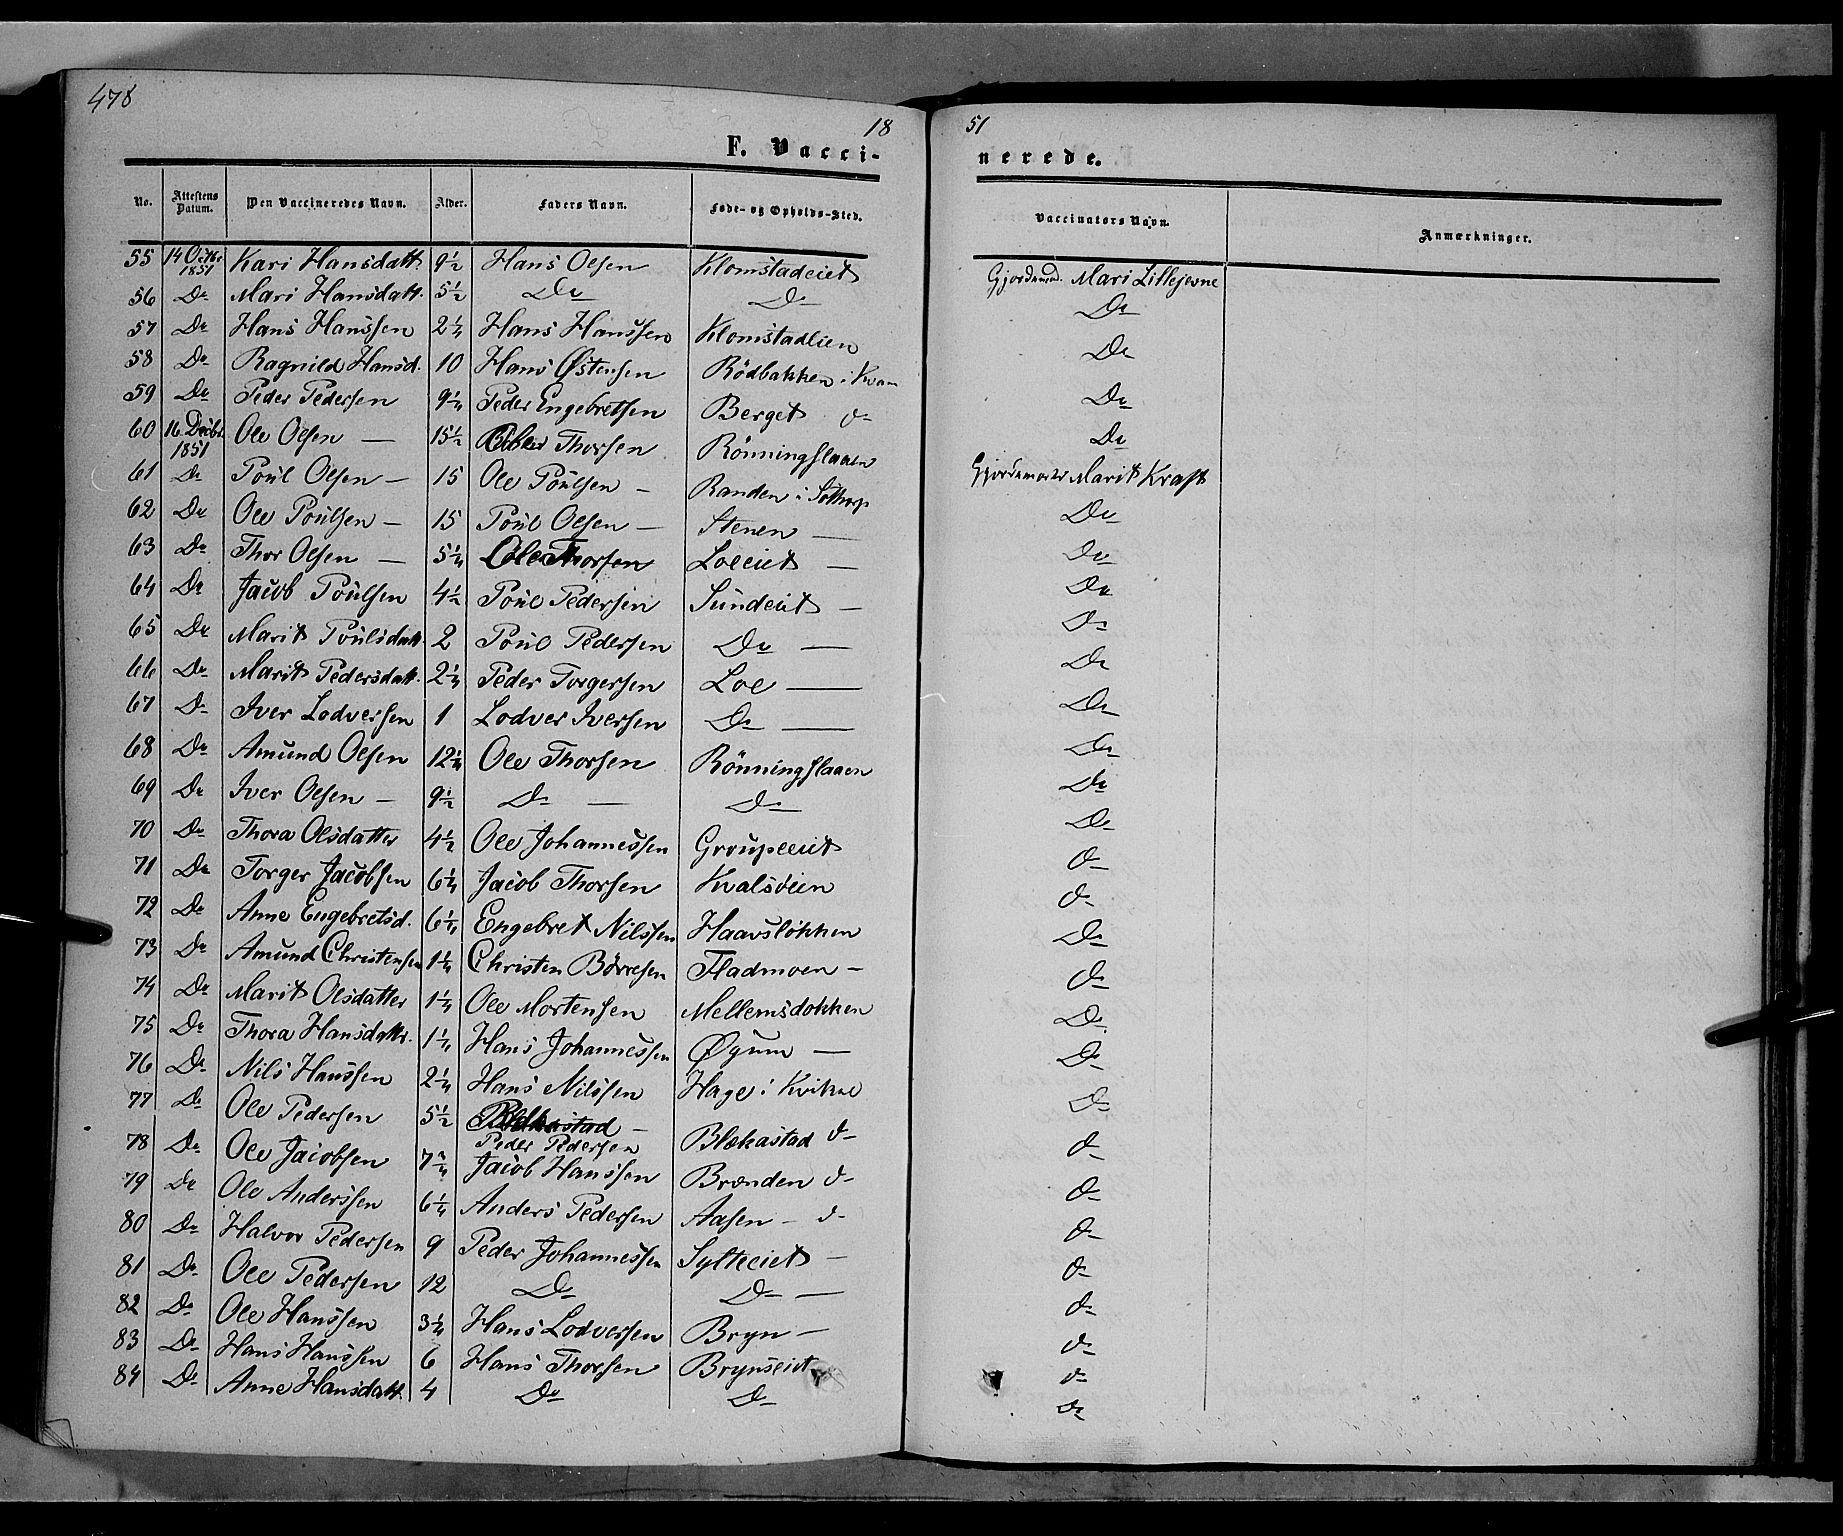 478
18 51
F. Vaccinerede.
No. Attestens Datum. Den Vaccineredes Navn. Alder. Faders Navn. Føde- og Opholds-Sted. Vaccinators Navn. Anmærkninger.
55 14 Octbr 1851 Kari Hansdatt. 9½ Hans Olsen Klomstadeiet Gjordemod. Mari Lillejevne
56 Do Mari Hansdatt. 5½ Do Do Do
57 Do Hans Hanssen 2¼ Hans Hanssen Klomstadlien Do
58 Do Ragnild Hansd. 10 Hans Østensen Rödbakken i Kvam Do
59 Do Peder Pedersen 9¼ Peder Engebretsen Berget do Do
60 16 Decbr 1851 Ole Olsen — 15½ Thorsen Rönningslaaen Gjordemoder Marit Kraft
61 Do Poul Olsen — 15 Ole Poulsen — Randen i Do
62 Do Ole Poulsen — 15 Poul Olsen — Stenen — Do
63 Do Thor Olsen — 5¼ Ole Thorsen Loeeiet — Do
64 Do Jacob Poulsen 4½ Poul Pedersen Sundeiet — Do
65 Do Marit Poulsdatt. 2 Poul Pedersen Do — Do
66 Do Marit Pedersdatt. 2¼ Peder Torgersen Loe — Do
67 Do Iver Lodversen 1 Lodver Iversen Do — Do
68 Do Amund Olsen 12¼ Ole Thorsen Rönningslaaen Do
69 Do Iver Olsen — 9½ Do — Do Do
70 Do Thora Olsdatter 4½ Ole Johannessen Groupeeiet Do
71 Do Torger Jacobsen 6¼ Jacob Thorsen Kvalsöien do
72 Do Anne Engebretsd. 6¼ Engebret Nilssen Haavslökken Do
73 Do Amund Christensen 1¼ Christen Börresen Fladmoen — do
74 Do Marit Olsdatter 1¼ Ole Mortensen Mellemsdokken Do
75 Do Thora Hansdattr. 1¼ Hans Johannessen Øyum — Do
76 Do Nils Hanssen 2¼ Hans Nilssen Hage i Kvikne Do
77 Do Ole Pedersen 5½ Peder Pedersen Blekastad do do
78 Do Ole Jacobsen Jacob Hanssen Brænden do do
79 Do Ole Anderssen 6¼ Anders Pedersen Aasen — do do
80 Do Halvor Pedersen 9 Peder Johannessen Sylteeiet — do
81 Do Ole Pedersen 12 Do Do — do
82 Do Ole Hanssen 3¼ Hans Lodversen Bryn — do
83 Do Hans Hanssen 6 Hans Thorsen Brynseiet do
84 Do Anne Hansdatt. 4 Do Do do